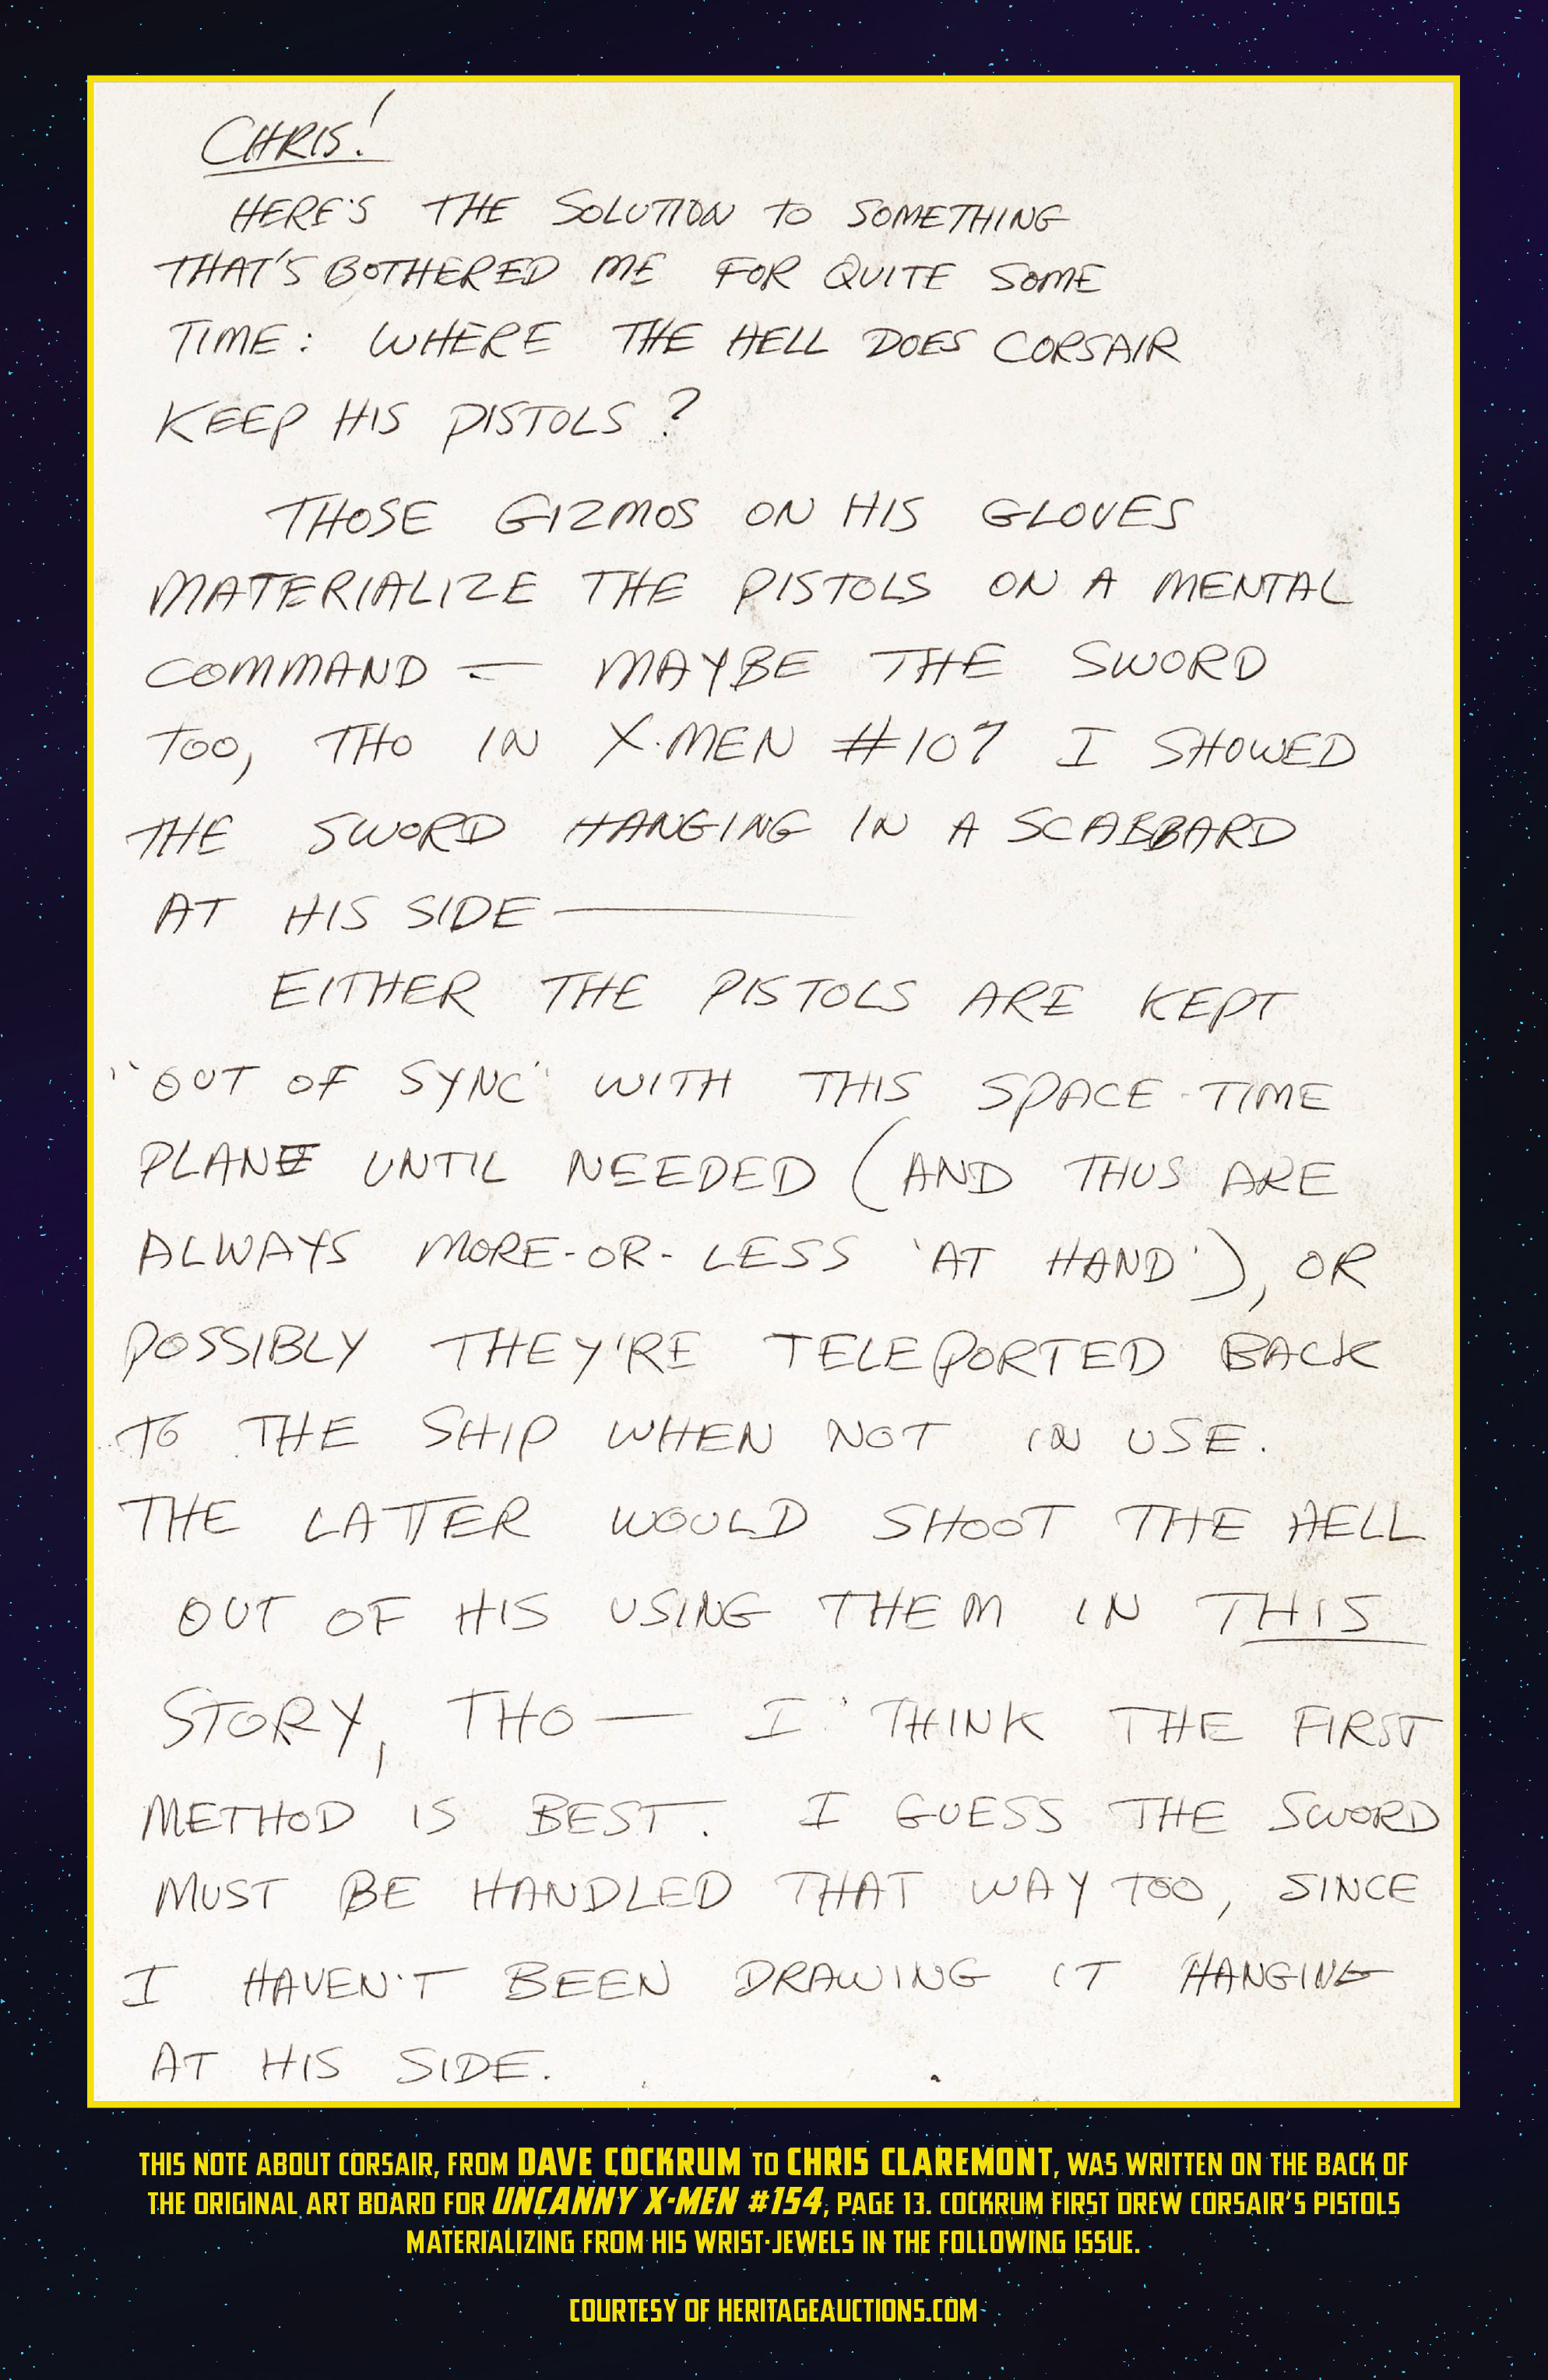 CHRIS!
HERE'S THE SOLUTION TO SOMETHING
THAT'S BOTHERED ME FOR QUITE SOME
TIME: WHERE THE HELL DOES CORSAIR
KEEP HIS PISTOLS?
THOSE GIZMOS ON HIS GLOVES
MATERIALIZE THE PISTOLS ON A MENTAL
COMMAND — MAYBE THE SWORD
TOO, THO IN X-MEN #107 I SHOWED
THE SWORD HANGING IN A SCABBARD
AT HIS SIDE —
EITHER THE PISTOLS ARE KEPT
"OUT OF SYNC" WITH THIS SPACE-TIME
PLANE UNTIL NEEDED (AND THUS ARE
ALWAYS MORE-OR-LESS 'AT HAND'), OR
POSSIBLY THEY'RE TELEPORTED BACK
TO THE SHIP WHEN NOT IN USE.
THE LATTER WOULD SHOOT THE HELL
OUT OF HIS USING THEM IN THIS
STORY, THO — I THINK THE FIRST
METHOD IS BEST. I GUESS THE SWORD
MUST BE HANDLED THAT WAY TOO, SINCE
I HAVEN'T BEEN DRAWING IT HANGING
AT HIS SIDE.
THIS NOTE ABOUT CORSAIR, FROM DAVE COCKRUM TO CHRIS CLAREMONT, WAS WRITTEN ON THE BACK OF
THE ORIGINAL ART BOARD FOR UNCANNY X-MEN #154, PAGE 13. COCKRUM FIRST DREW CORSAIR'S PISTOLS
MATERIALIZING FROM HIS WRIST-JEWELS IN THE FOLLOWING ISSUE.
COURTESY OF HERITAGEAUCTIONS.COM